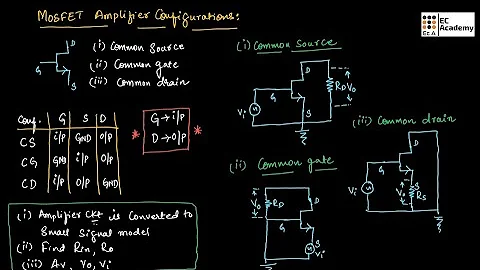 MOSFET Amplifier Configurations:
EC Academy
EcA
D
G
S
(i) Common Source
(ii) Common gate
(iii) Common drain
(i) Common Source
D
G
S
RD
Vo
Vi
Conf. G S D
CS i/p GND o/p
CG GND i/p o/p
CD i/p o/p GND
* G → i/p *
D → o/p
(ii) Common gate
Vo
RD
D
G
S
Vi
(iii) Common drain
D
G
S
Vi
Vo
RS
(i) Amplifier Ckt is Converted to
Small Signal model
(ii) Find Rin, Ro
(iii) Av, Vo, Vi